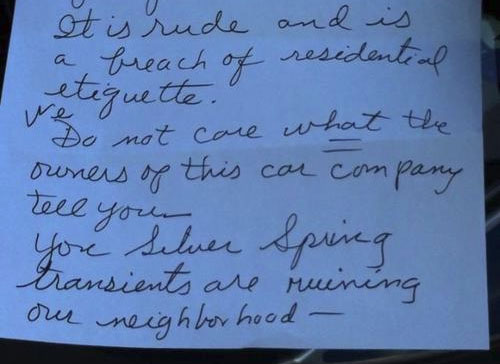 It is rude and is
a breach of residential
etiquette.
We
Do not care what the
owners of this car company
tell you—
You Silver Spring
transients are ruining
our neighborhood —